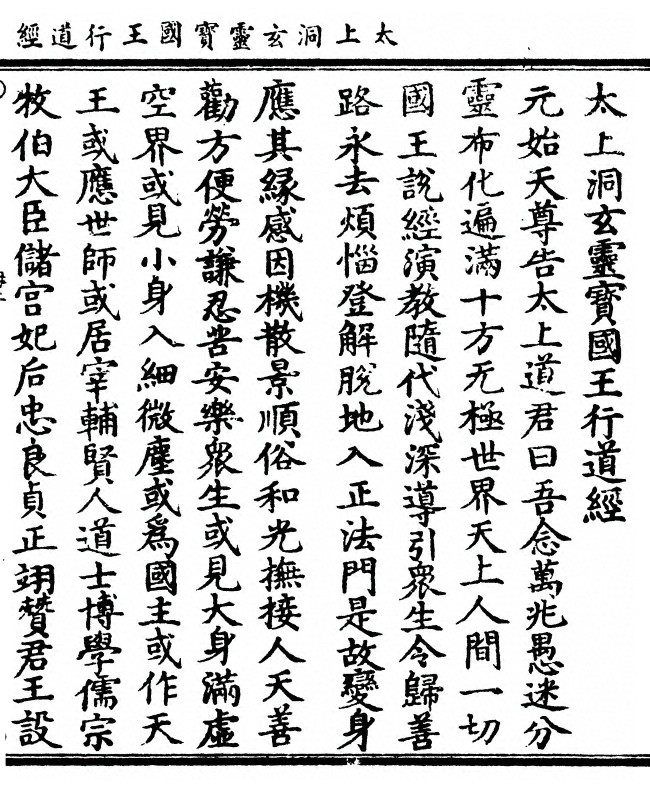 太上洞玄靈寶國王行道經
太上洞玄靈寶國王行道經
元始天尊告太上道君曰吾念萬兆愚迷分
靈布化遍滿十方无極世界天上人間一切
國王說經演教隨代淺深導引衆生令歸善
路永去煩惱登解脫地入正法門是故變身
應其緣感因機散景順俗和光撫接人天善
勸方便勞謙忍苦安樂衆生或見大身滿虛
空界或見小身入細微塵或爲國主或作天
王或應世師或居宰輔賢人道士博學儒宗
牧伯大臣儲宮妃后忠良貞正翊贊君王設